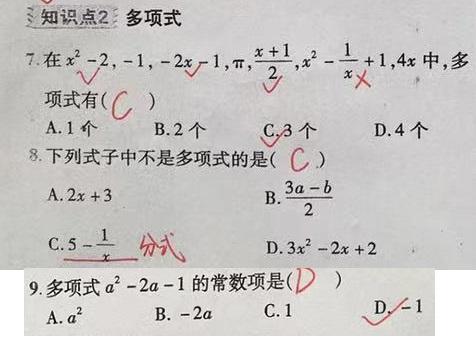 知识点2 多项式
7.在 x² -2, -1, -2x -1, π, (x+1)/2, x² - 1/x +1, 4x 中,多
项式有( C )
A.1 个 B.2 个 C.3 个 D.4 个
8.下列式子中不是多项式的是( C )
A.2x+3 B. (3a-b)/2
C.5 - 1/x 分式 D.3x² -2x+2
9.多项式 a² -2a-1 的常数项是( D )
A.a² B. -2a C.1 D. -1